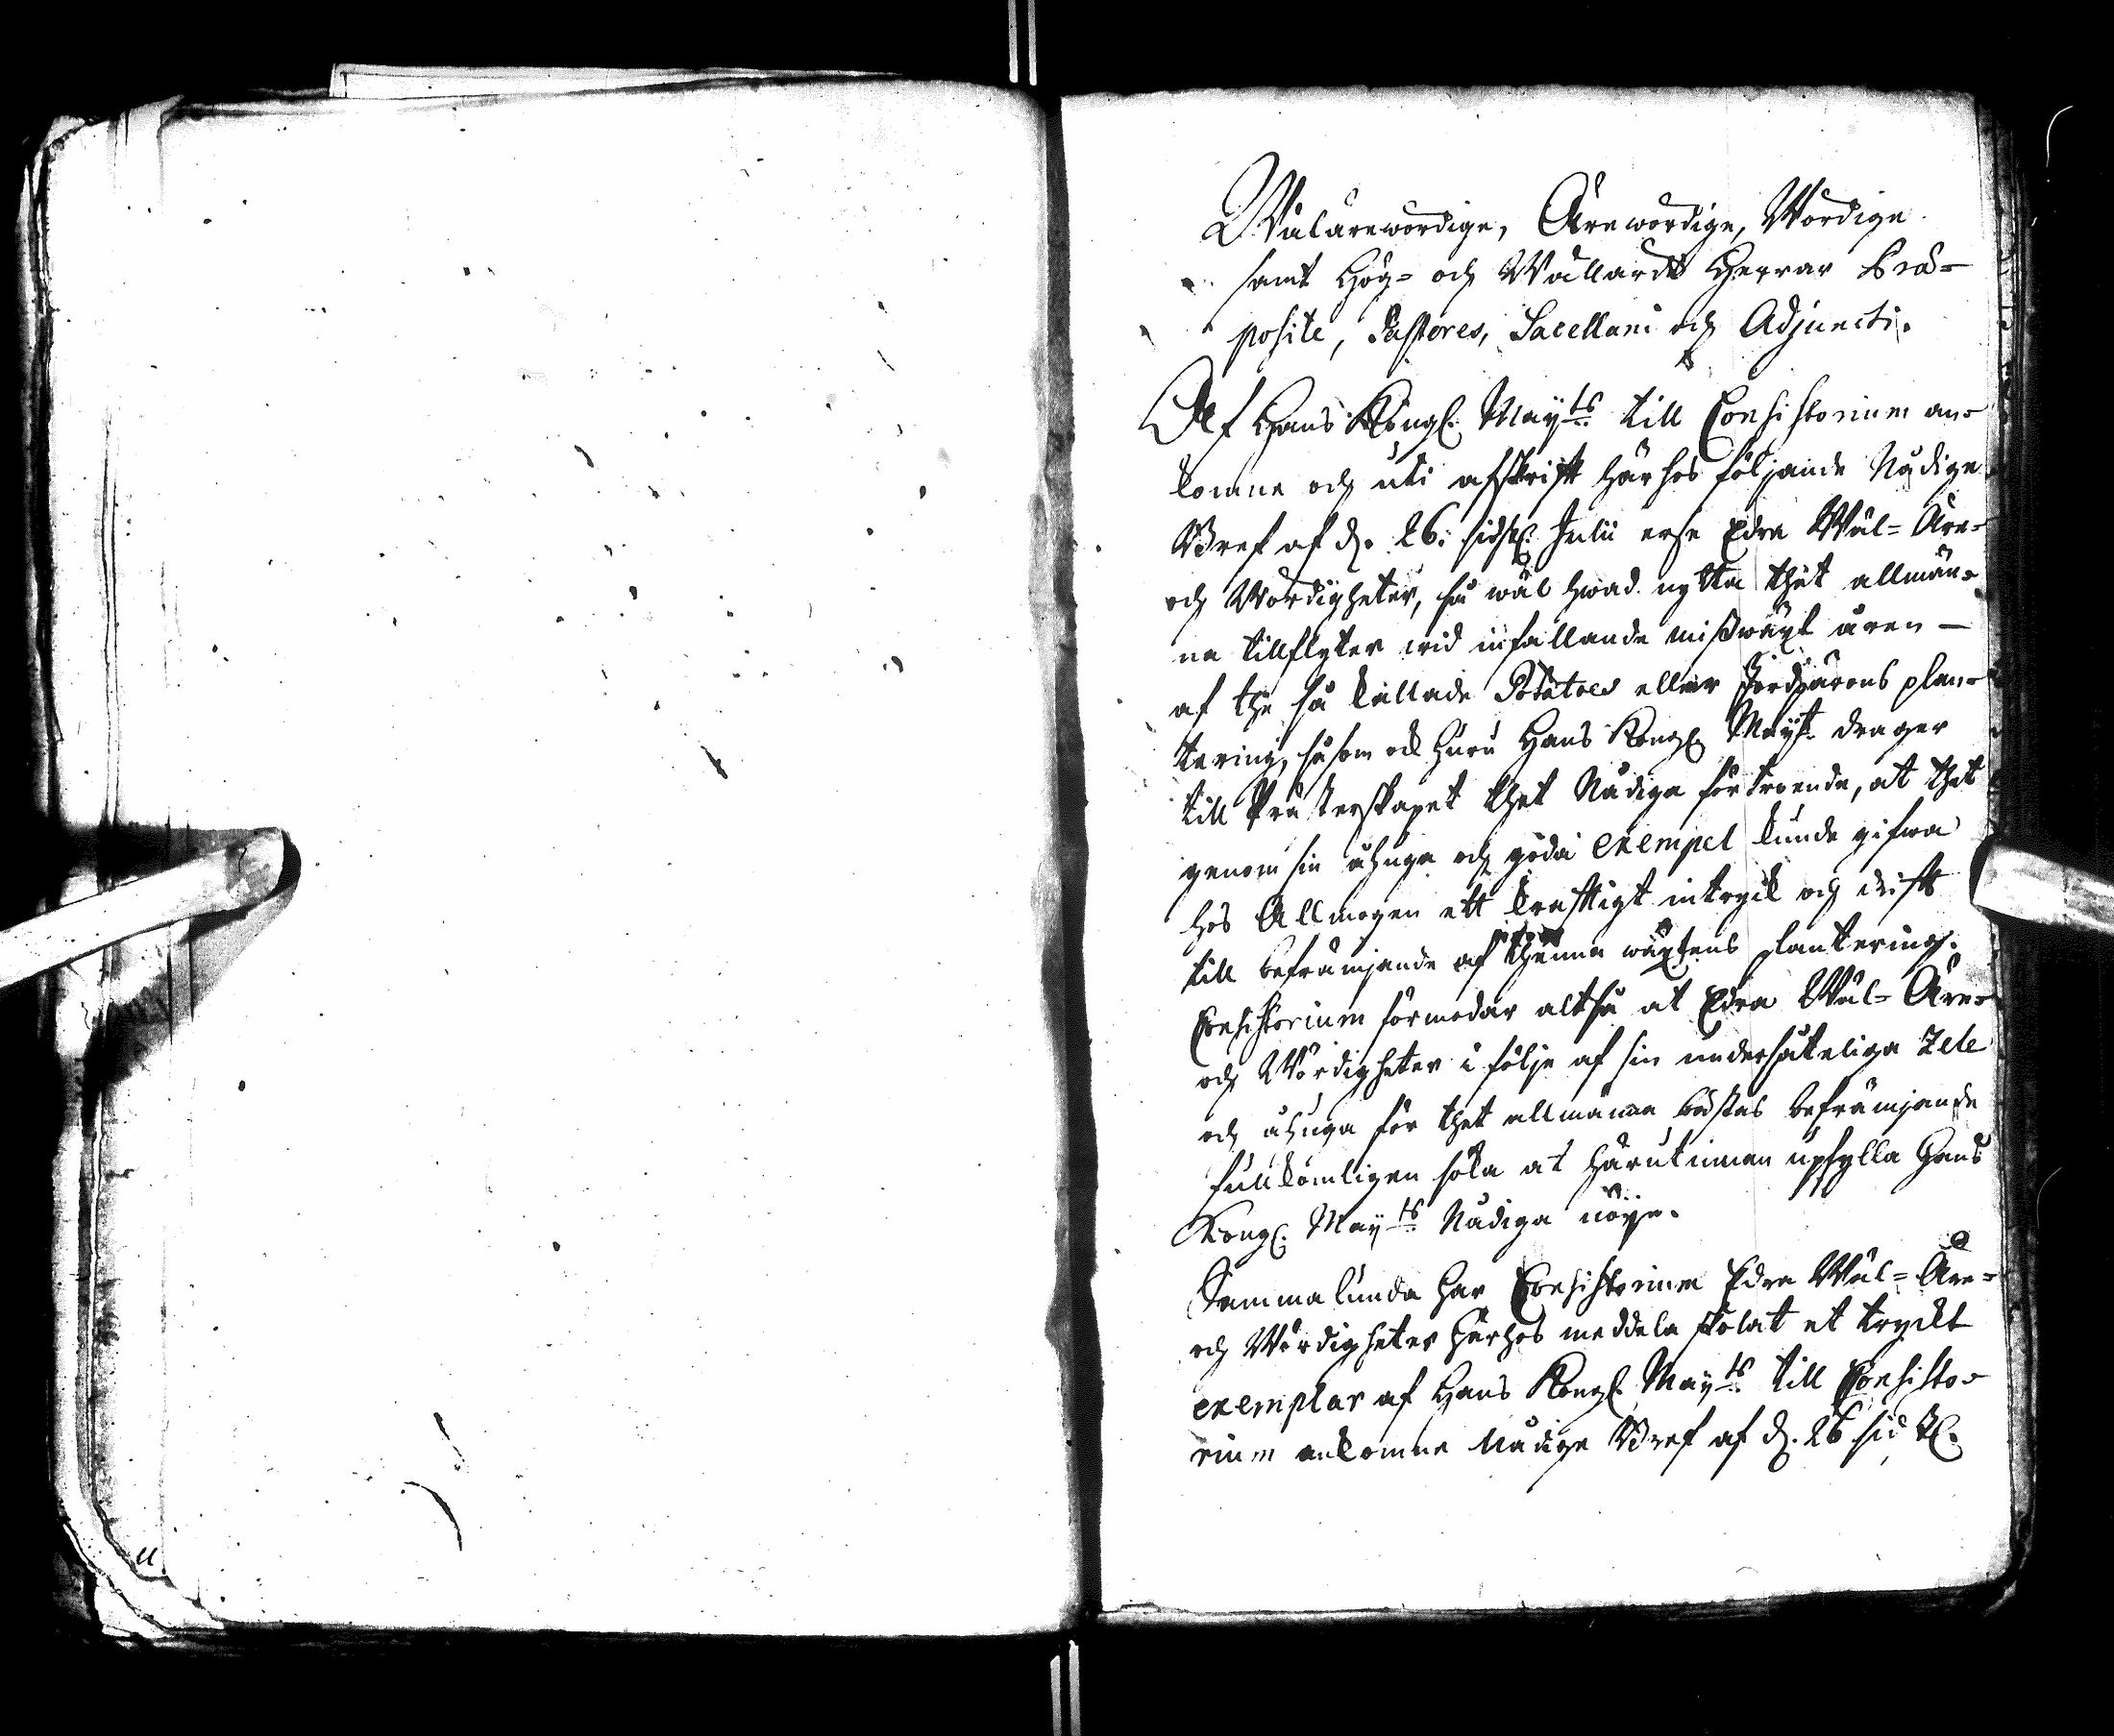 Wälärewördige, Ärewördige, Wördige
samt Hög- och Wällärde Herrar Præ-
positi, Pastores, Sacellani och Adjuncti.
Af Hans Kongl. Mayts till Consistorium an-
komne och uti afskrift härhos följande Nådige
Bref af d. 26. sidstl. Julii erse Edra Wäl- Äre-
och Wördigheter, så wäl hwad nytta thet allmän-
na tillflyter wid infallande mißwäxt åren —
af the så kallade Potatoes eller Jordpärons plan-
tering, såsom ock huru Hans Kongl. Mayt. drager
till Prästerskapet thet Nådiga förtroende, at thet
genom sin åhuga och goda exempel kunde gifwa
hos Allmogen ett kraftigt intryck och drift
till befrämjande af thenna wäxtens plantering.
Consistorium förmodar altså at Edra Wäl- Äre-
och Wördigheter i följe af sin undersåteliga zele
och åhuga för thet allmänna bästas befrämjande
fullkomligen söka at härutinnan upfylla Hans
Kongl. Mayts Nådiga nöije.
Sammalunda har Consistorium Edra Wäl- Äre-
och Wördigheter härhos meddela skolat et tryckt
exemplar af Hans Kongl. Mayts till Consisto-
rium ankomne Nådige Bref af d. 26 sidstl.